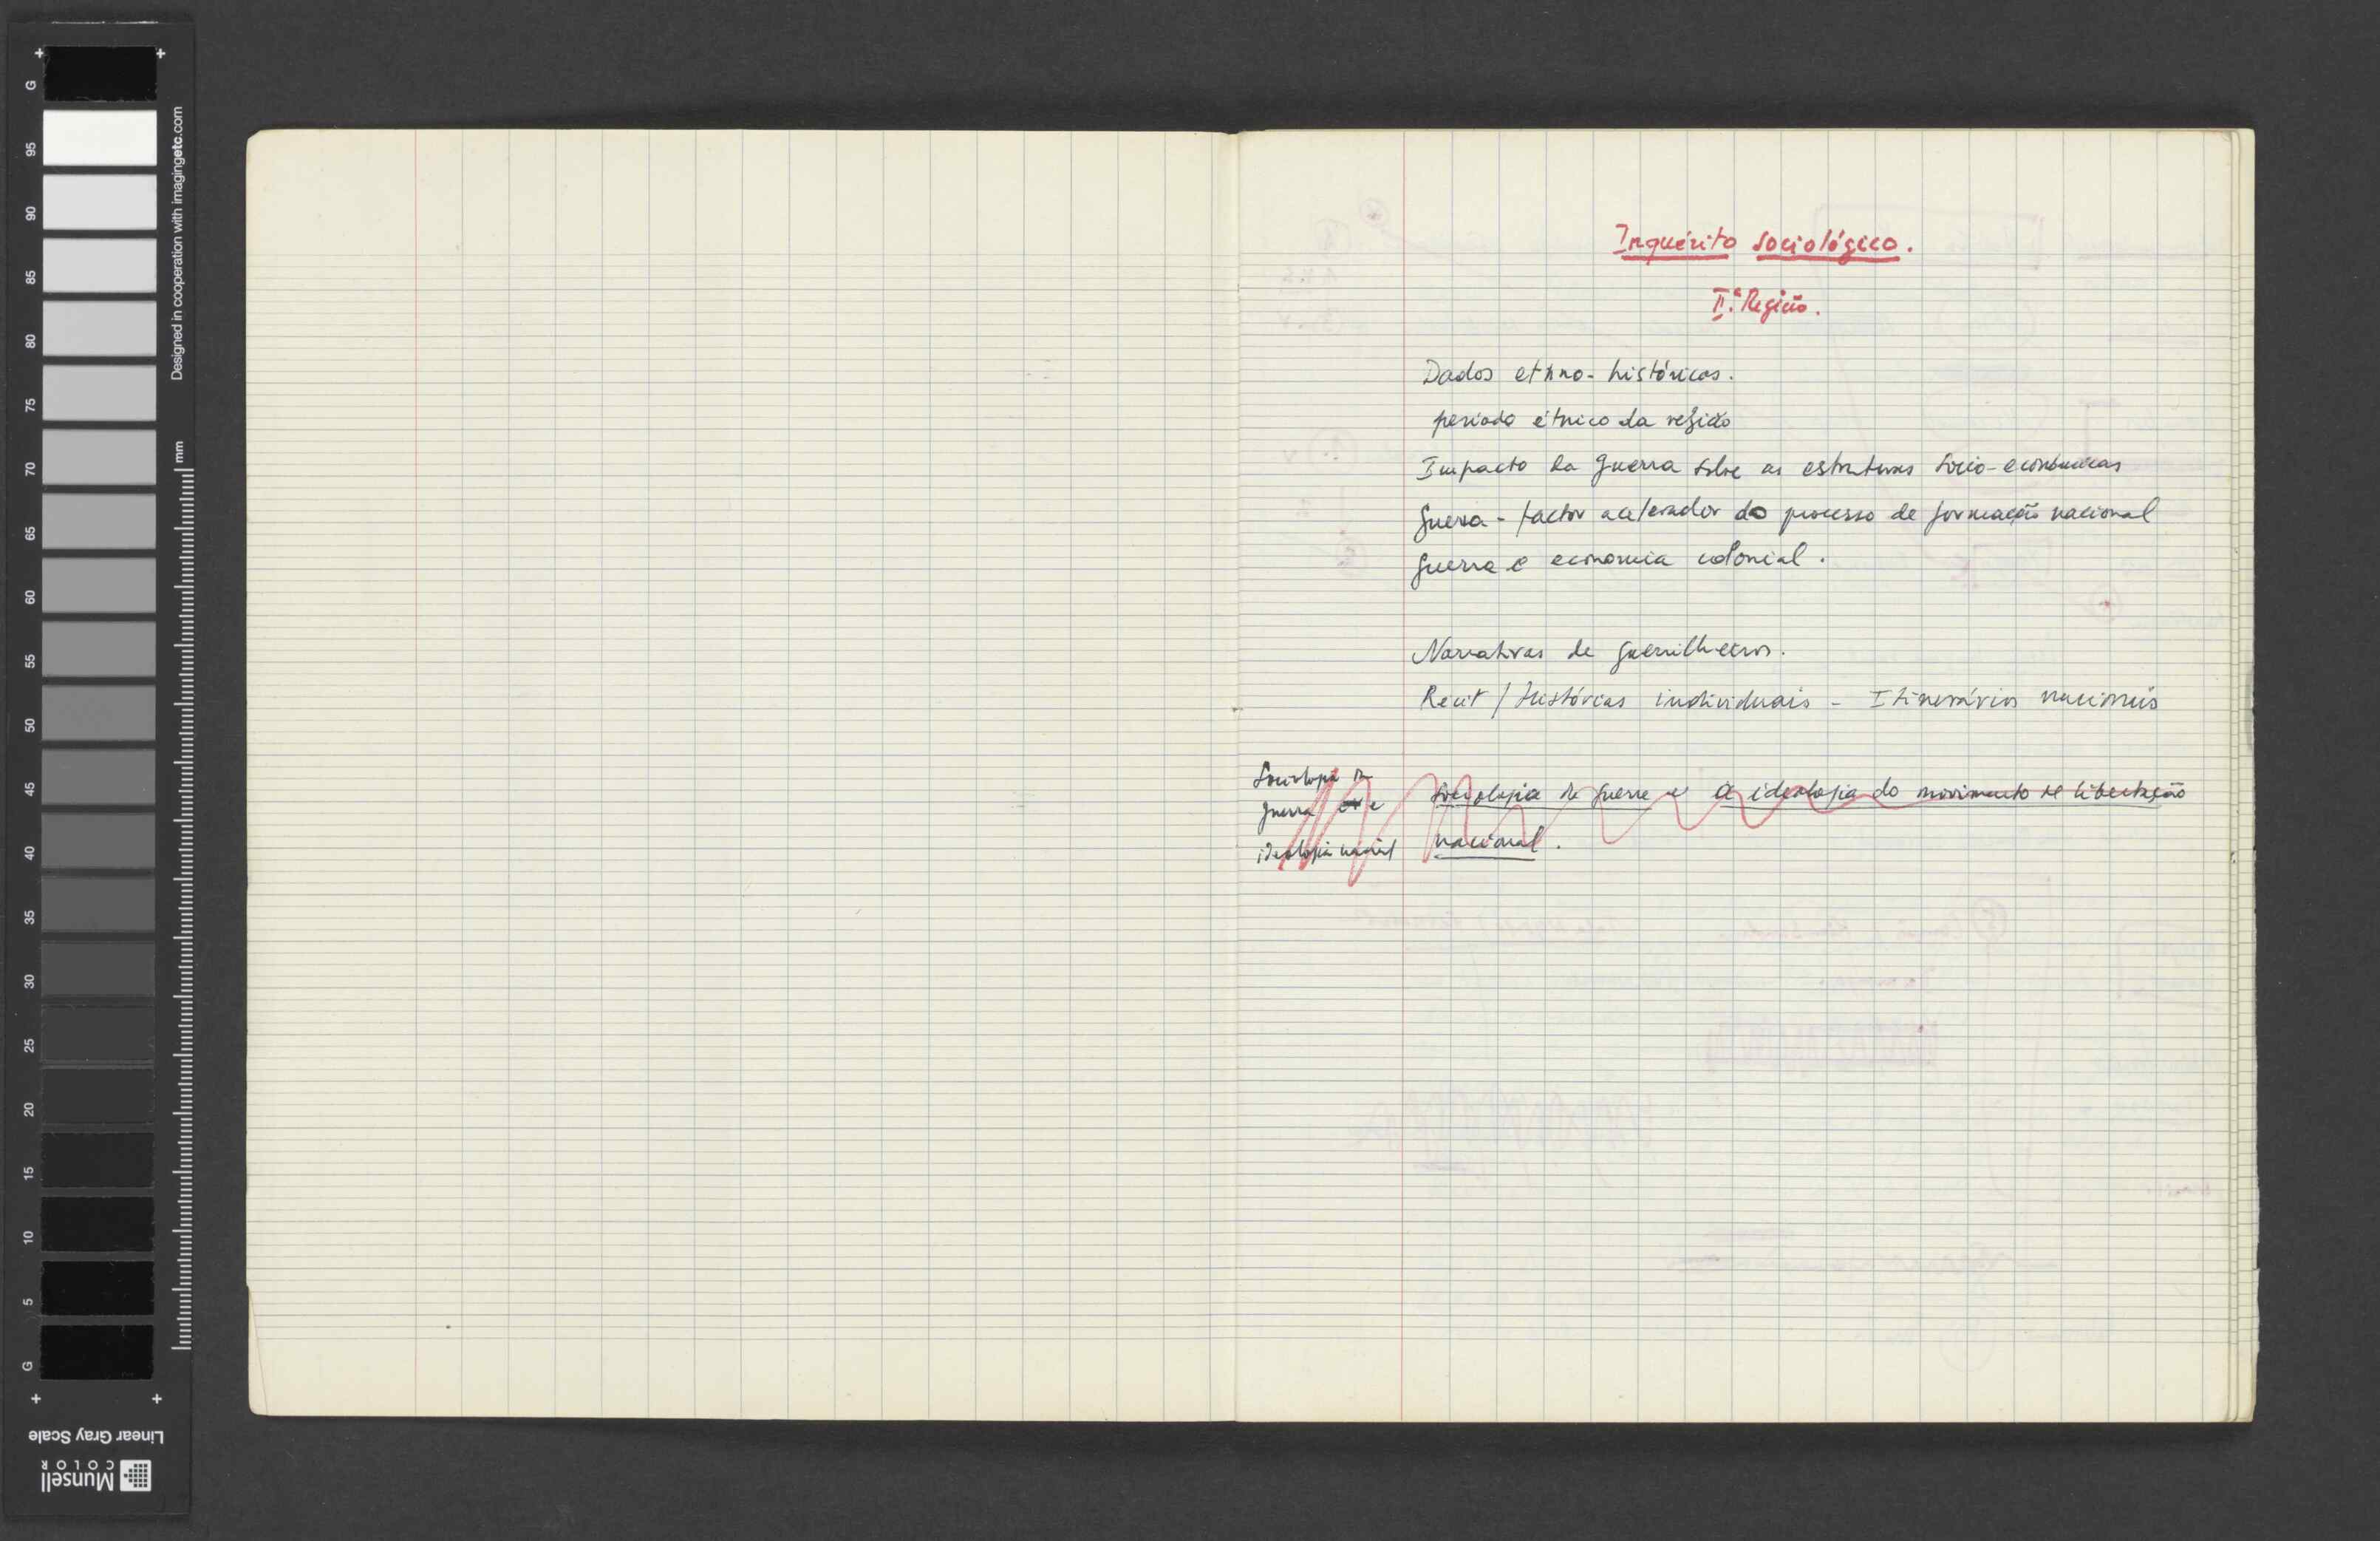 G
95
90
85
80
75
70
65
60
55
50
45
40
35
30
25
20
15
10
5
G
Designed in cooperation with imagingetc.com
mm
Linear Gray Scale
Munsell
COLOR
Inquérito sociológico.
II.ª Região.
Dados ethno-históricos.
periodo étnico da região
Impacto da guerra sobre as estruturas sócio-económicas
guerra - factor acelerador do processo de formação nacional
guerra e economia colonial.
Narrativas de guerrilheiros.
Récit / Histórias individuais - Itinerários nacionais
Sociologia da
guerra e
ideologia nacional
Sociologia da guerra e a ideologia do movimento de libertação
nacional.